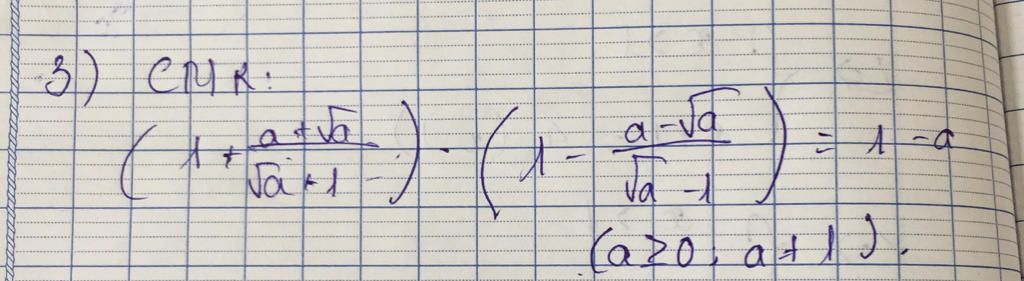 3) CMR:
(1 + \frac{a + \sqrt{a}}{\sqrt{a} + 1}) \cdot (1 - \frac{a - \sqrt{a}}{\sqrt{a} - 1}) = 1 - a
(a ≥ 0; a ≠ 1).